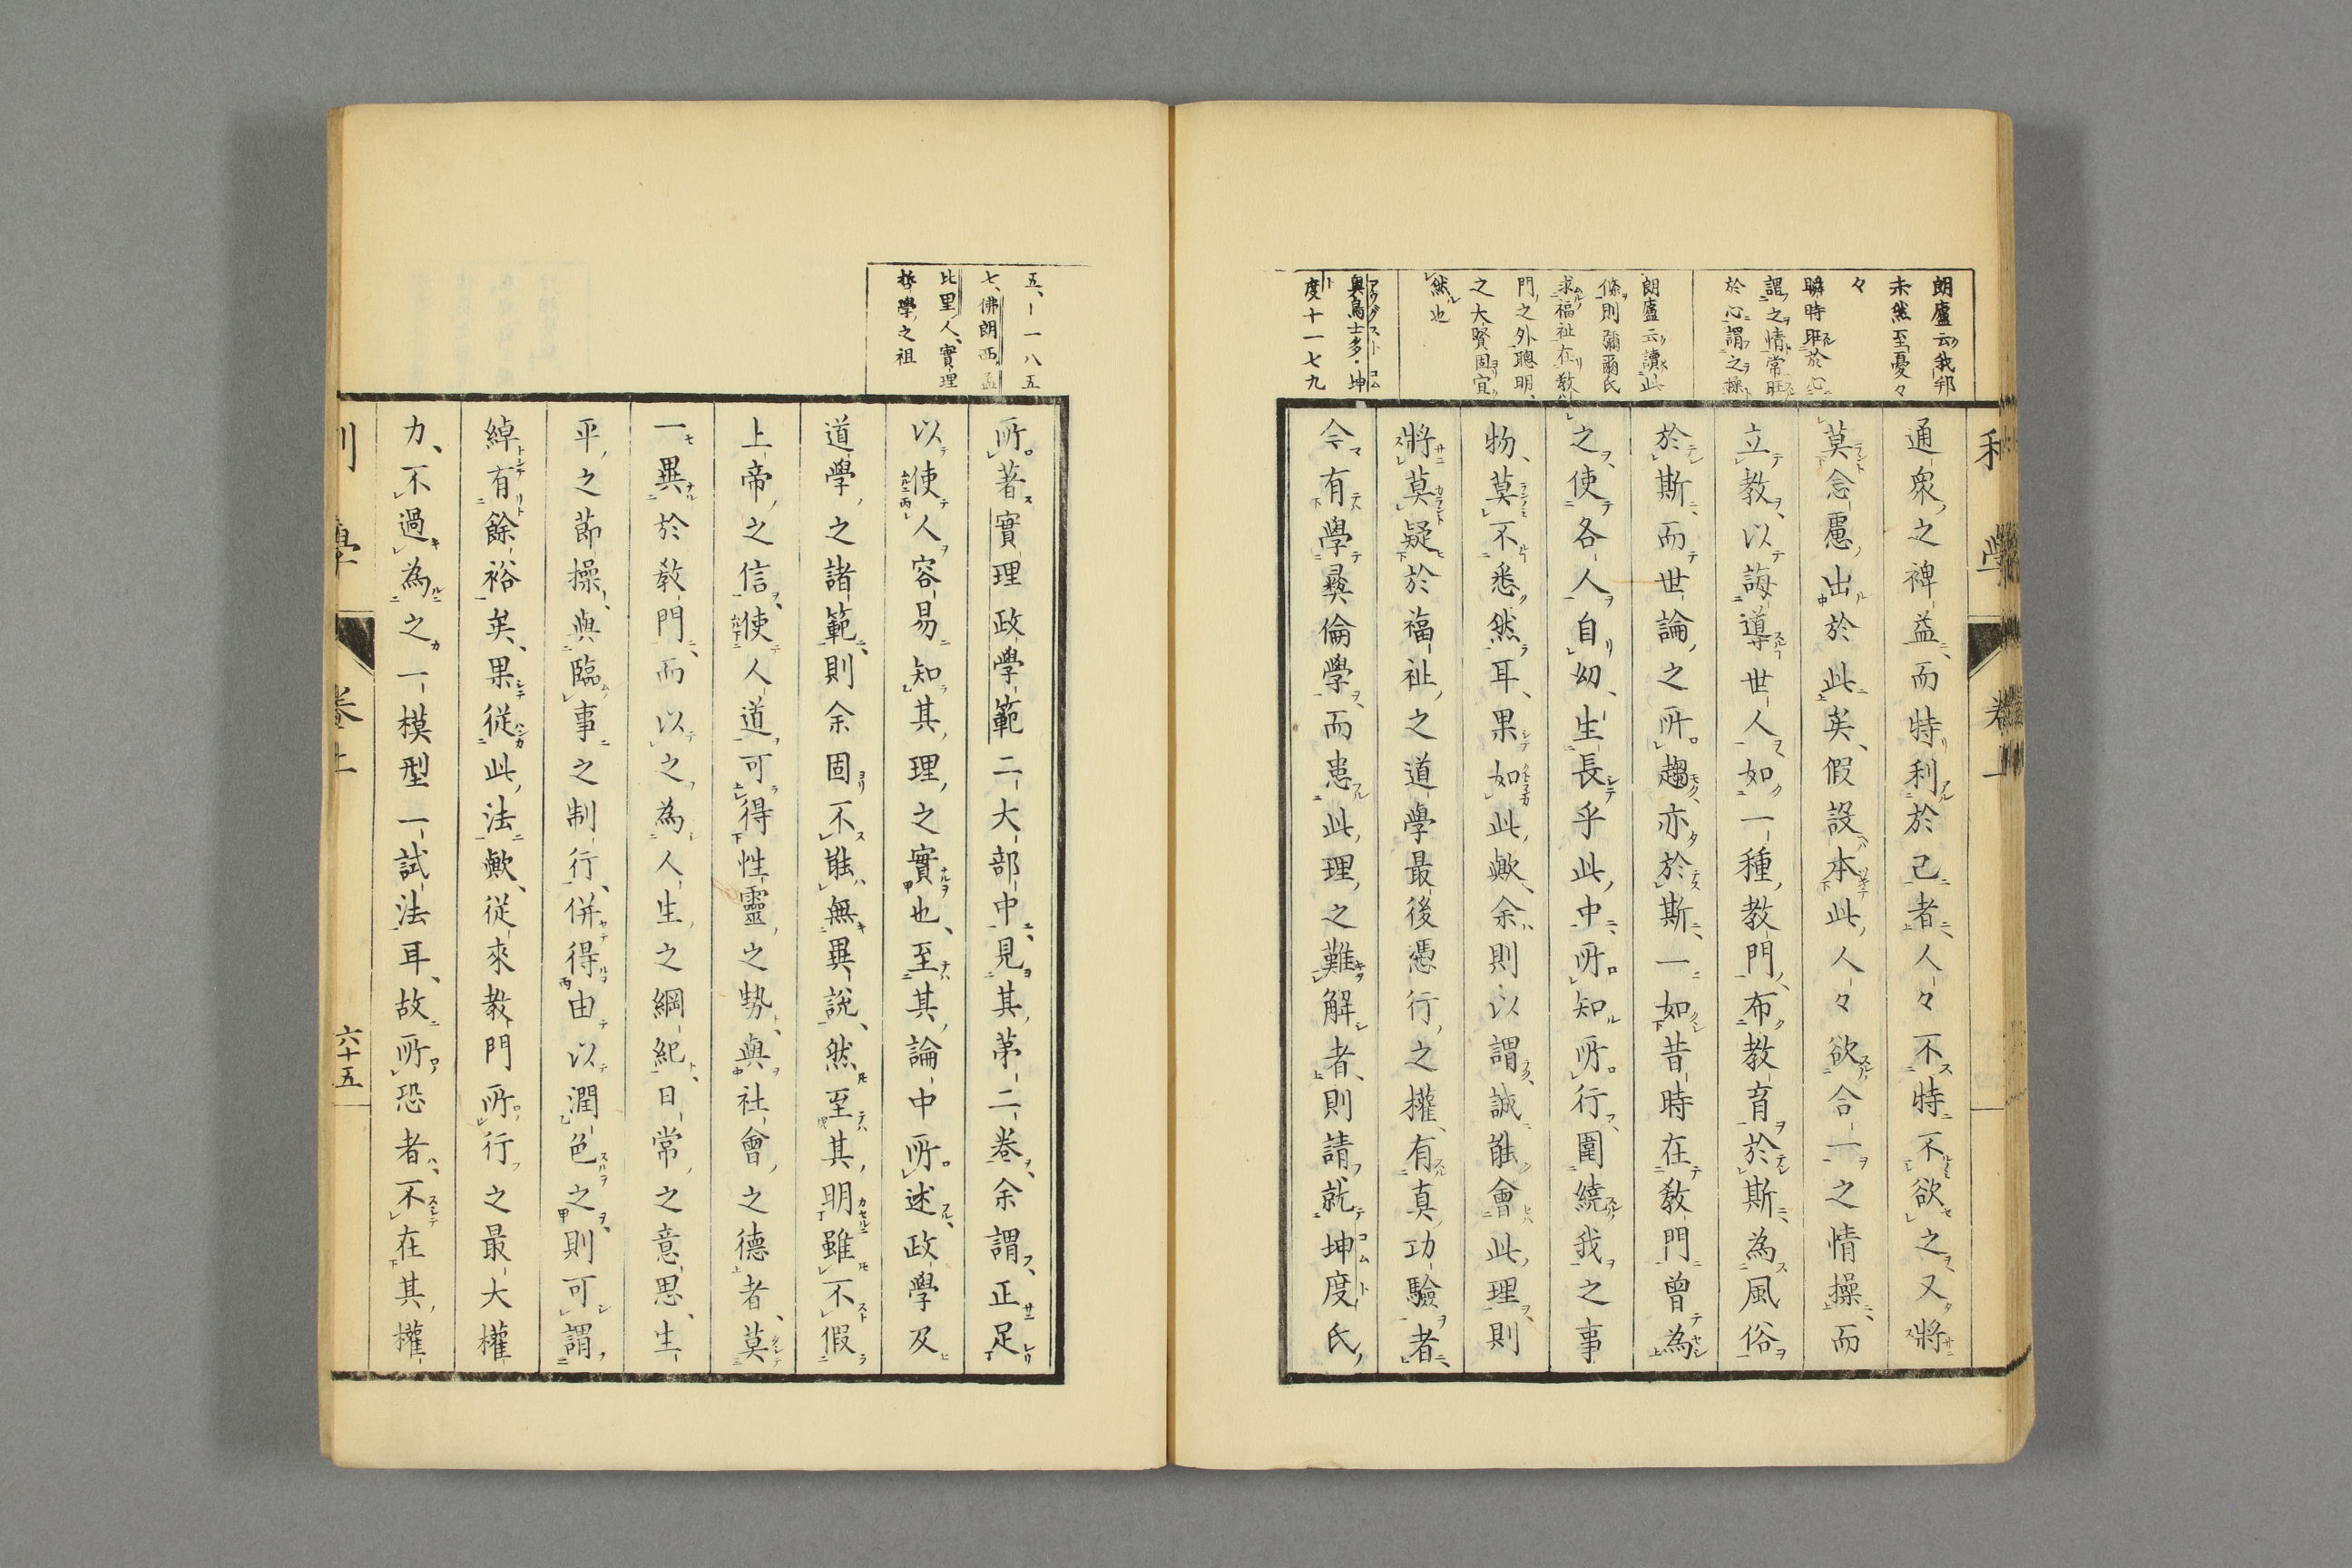 朗廬云我邦
未然至憂々
々
瞬時旺於心
謂之情常旺
於心謂之操
朗廬云讀此
條則彌爾氏
求福祉在教
門之外聰明
之大賢固宜
然也
奧烏士多・坤
度十一七九
利學
卷上
通衆之裨益而特利於己者人々不特不欲之又將
莫念慮出於此矣假設本此人々欲合一之情操而
立教以誨導世人如一種教門布教育於斯為風俗
於斯而世論之所趨亦於斯一如昔時在教門曾為
之使各人自幼生長乎此中所知所行圍繞我之事
物莫不悉然耳果如此歟余則以謂誠能會此理則
將莫疑於福祉之道學最後憑行之權有真功驗者
今有學彝倫學而患此理之難解者則請就坤度氏
五、一一八五
七、佛朗西孟
比里人、實理
哲學之祖
所著實理政學範二大部中見其第二卷余謂正足
以使人容易知其理之實也至其論中所述政學及
道學之諸範則余固不能無異說然至其明雖不假
上帝之信使人道可得性靈之勢與社會之德者莫
一異於教門而以之為人生之綱紀日常之意思生
平之節操與臨事之制行併得由以潤色之則可謂
綽有餘裕矣果從此法歟從來教門所行之最大權
力不過為之一模型一試法耳故所恐者不在其權
利學
卷上
六十五